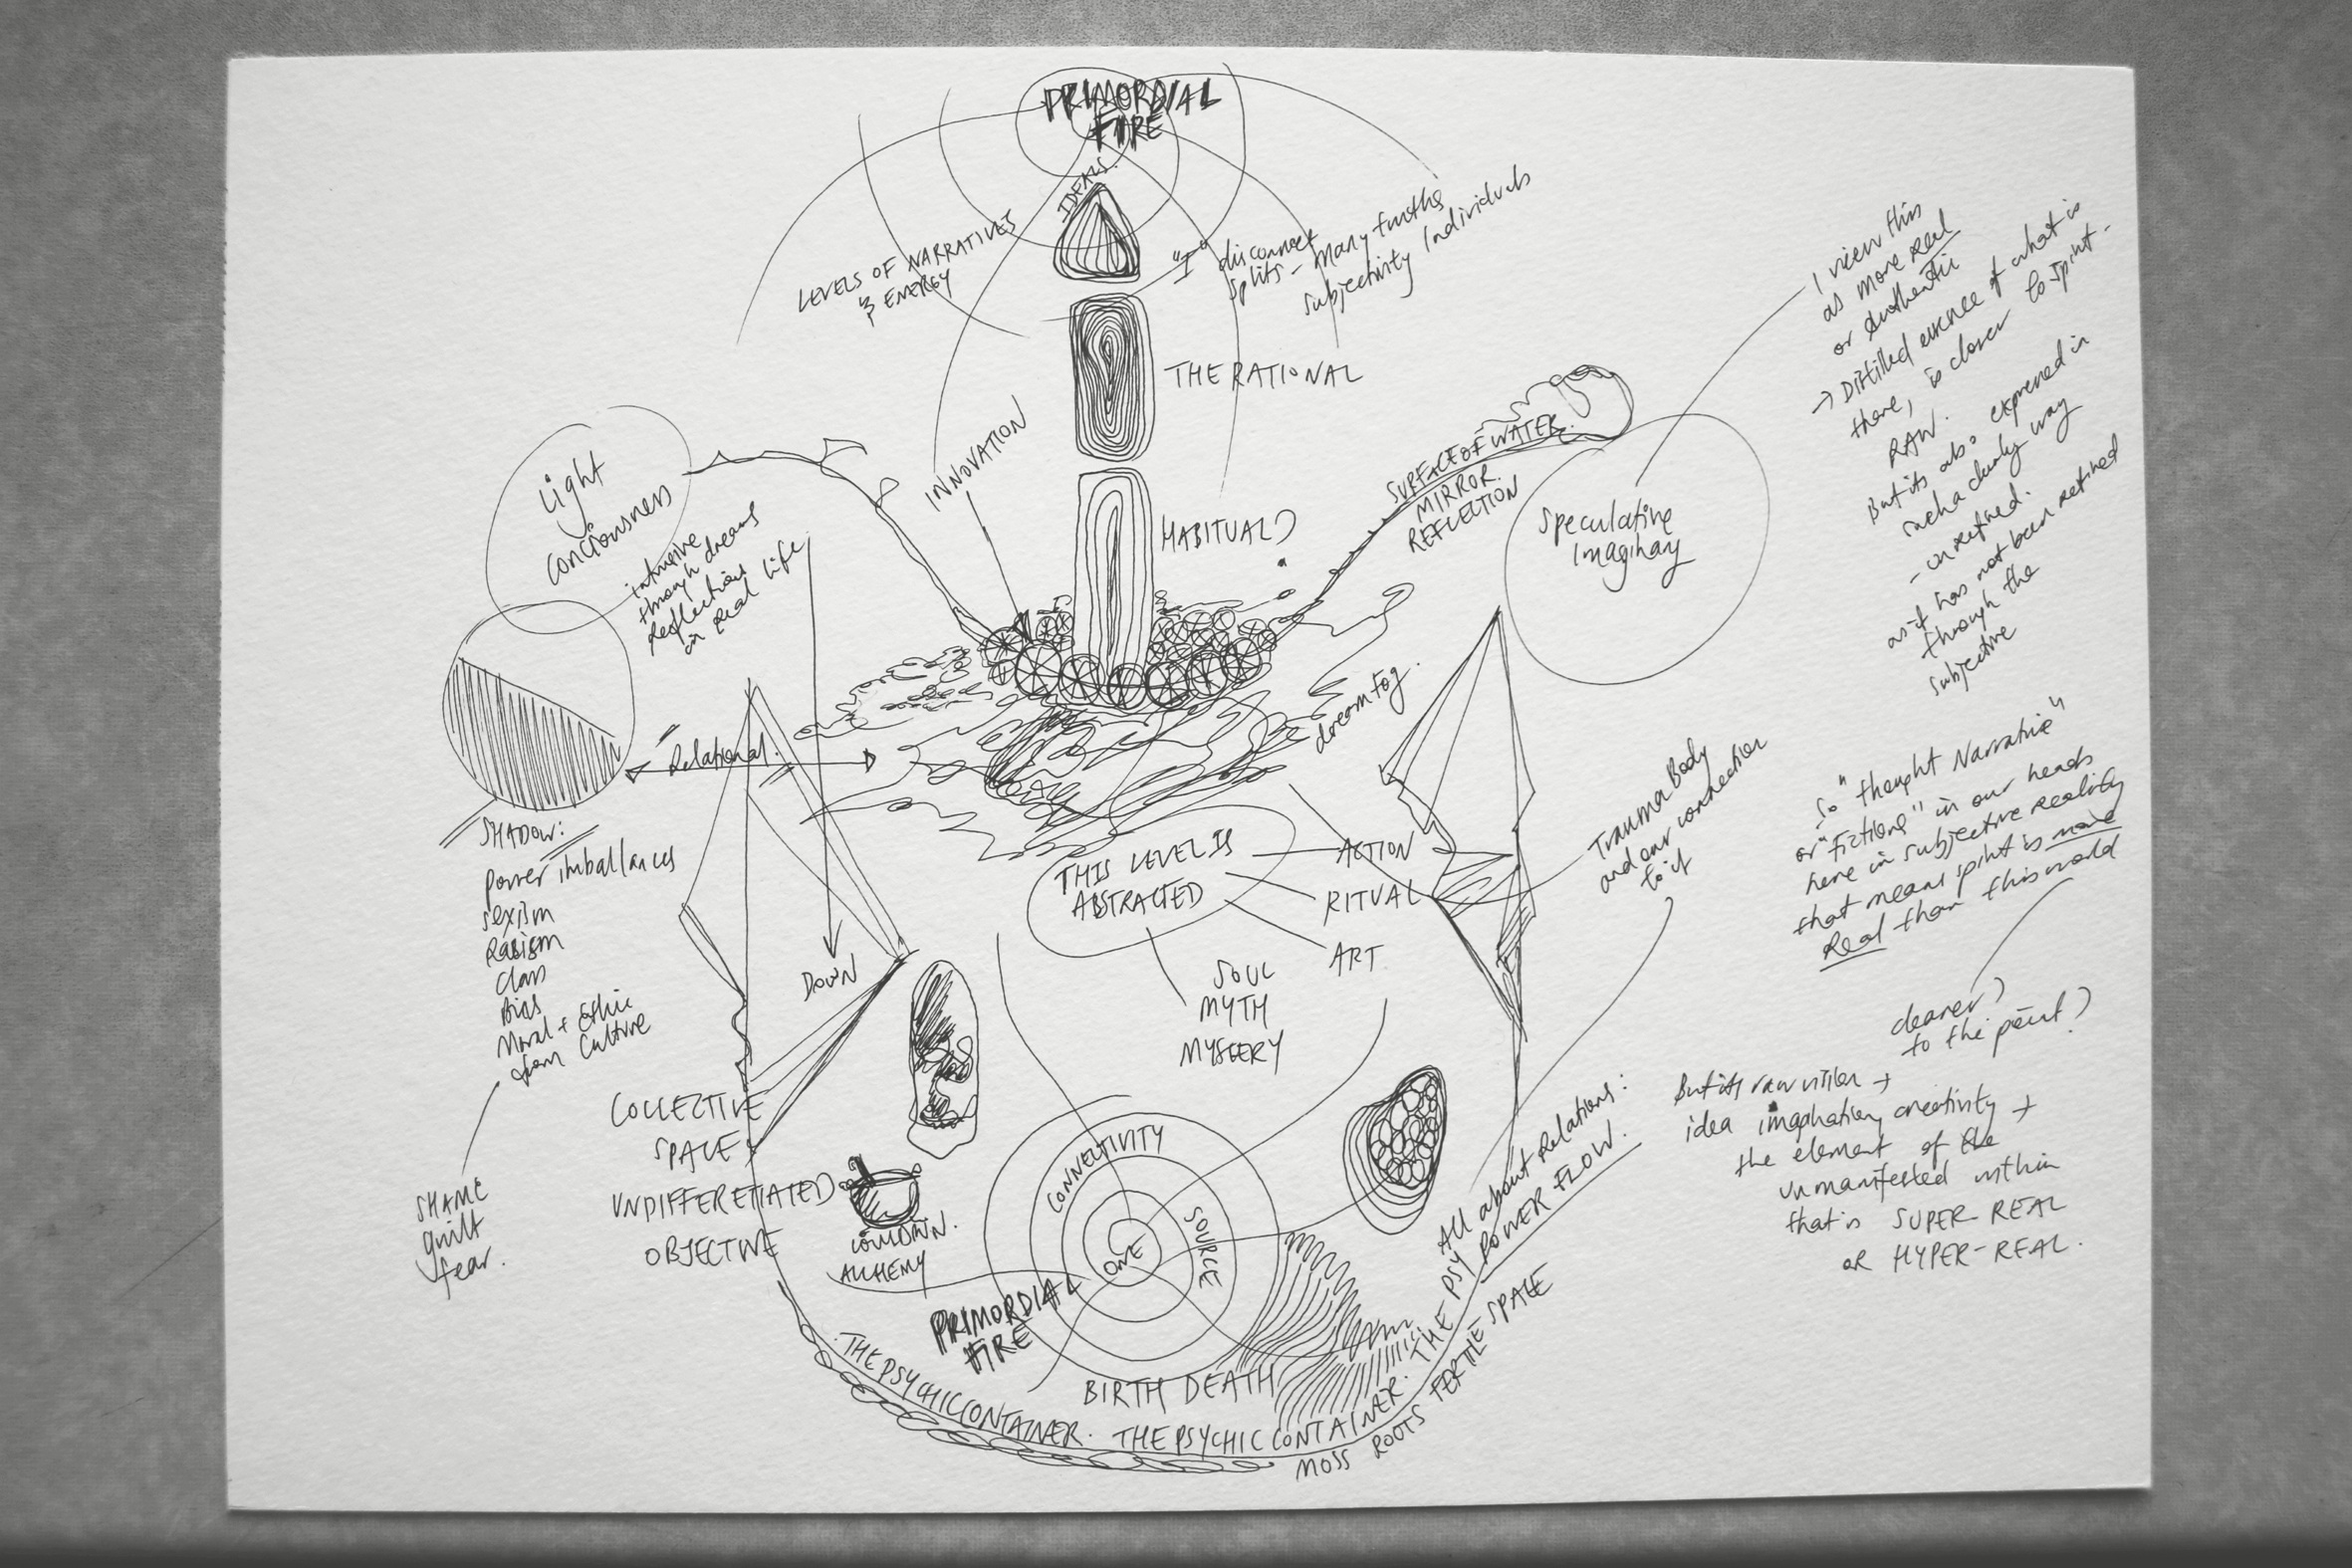 PRIMORDIAL
FIRE
IDEALS.
LEVELS OF NARRATIVES
& ENERGY
"I" disconnect
splits - many truths
subjectivity individuals
THE RATIONAL
INNOVATION
HABITUAL
SURFACE OF WATER.
MIRROR.
REFLECTION
Light
conciousness
intrusive
through dreams
Reflections
in real life
Speculative
imaginary
I view this
as more real
or Authentic
→ Distilled essence of what is
there, is closer to spirit -
RAW.
But its also expressed in
such a clunky way
- unrefined.
as if has not been refined
through the
subjective
"Relational.
dream fog.
SHADOW:
power imballances
sexism
Racism
Class
Bias
Moral + Ethic
from Culture
SHAME
guilt
fear.
DOWN
THIS LEVEL IS
ABSTRACTED
ACTION
RITUAL
ART
SOUL
MYTH
MYSTERY
Trauma Body
and our connection
to it
So "thought Narrative"
or "Fictions" in our heads
here in subjective reality
that means spirit is more
Real than this world
clearer?
to the point?
But its raw vision +
idea imagination, creativity +
the element of the
unmanifested within
that is SUPER-REAL
or HYPER-REAL.
COLLECTIVE
SPACE
UNDIFFERETIATED
OBJECTIVE
ALCHEMY
CONNECTIVITY
SOURCE
ONE
PRIMORDIAL
FIRE
BIRTH DEATH
All about Relations:
POWER FLOW.
THE PSYCHIC CONTAINER. THE PSYCHIC CONTAINER. THE PSY
MOSS ROOTS FERTILE SPACE